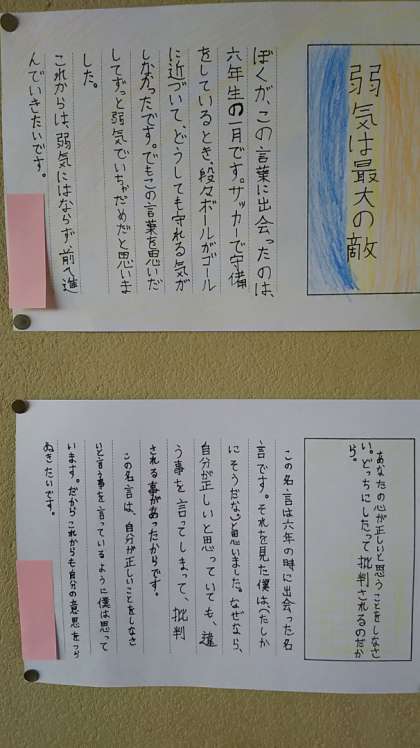 弱気は最大の敵
ぼくが、この言葉に出会ったのは、
六年生の一月です。サッカーで守備
をしているとき、段々ボールがゴール
に近づいて、どうしても守れる気が
しなかったです。でもこの言葉を思いだ
してずっと弱気でいちゃだめだと思いま
した。
これからは、弱気にはならず、前へ進
んでいきたいです。
あなたの心が正しいと思うことをしなさ
い。どっちにしたって批判されるのだか
ら。
この名言は六年の時に出会った名
言です。それを見た僕は、(たしか
にそうだな。)と思いました。なぜなら、
自分が正しいと思っていても、違
う事を言ってしまって、批判
される事があったからです。
この名言は、自分が正しいことをしなさ
いと言う事を言っているように僕は思って
います。だからこれからも自分の意思をつら
ぬきたいです。